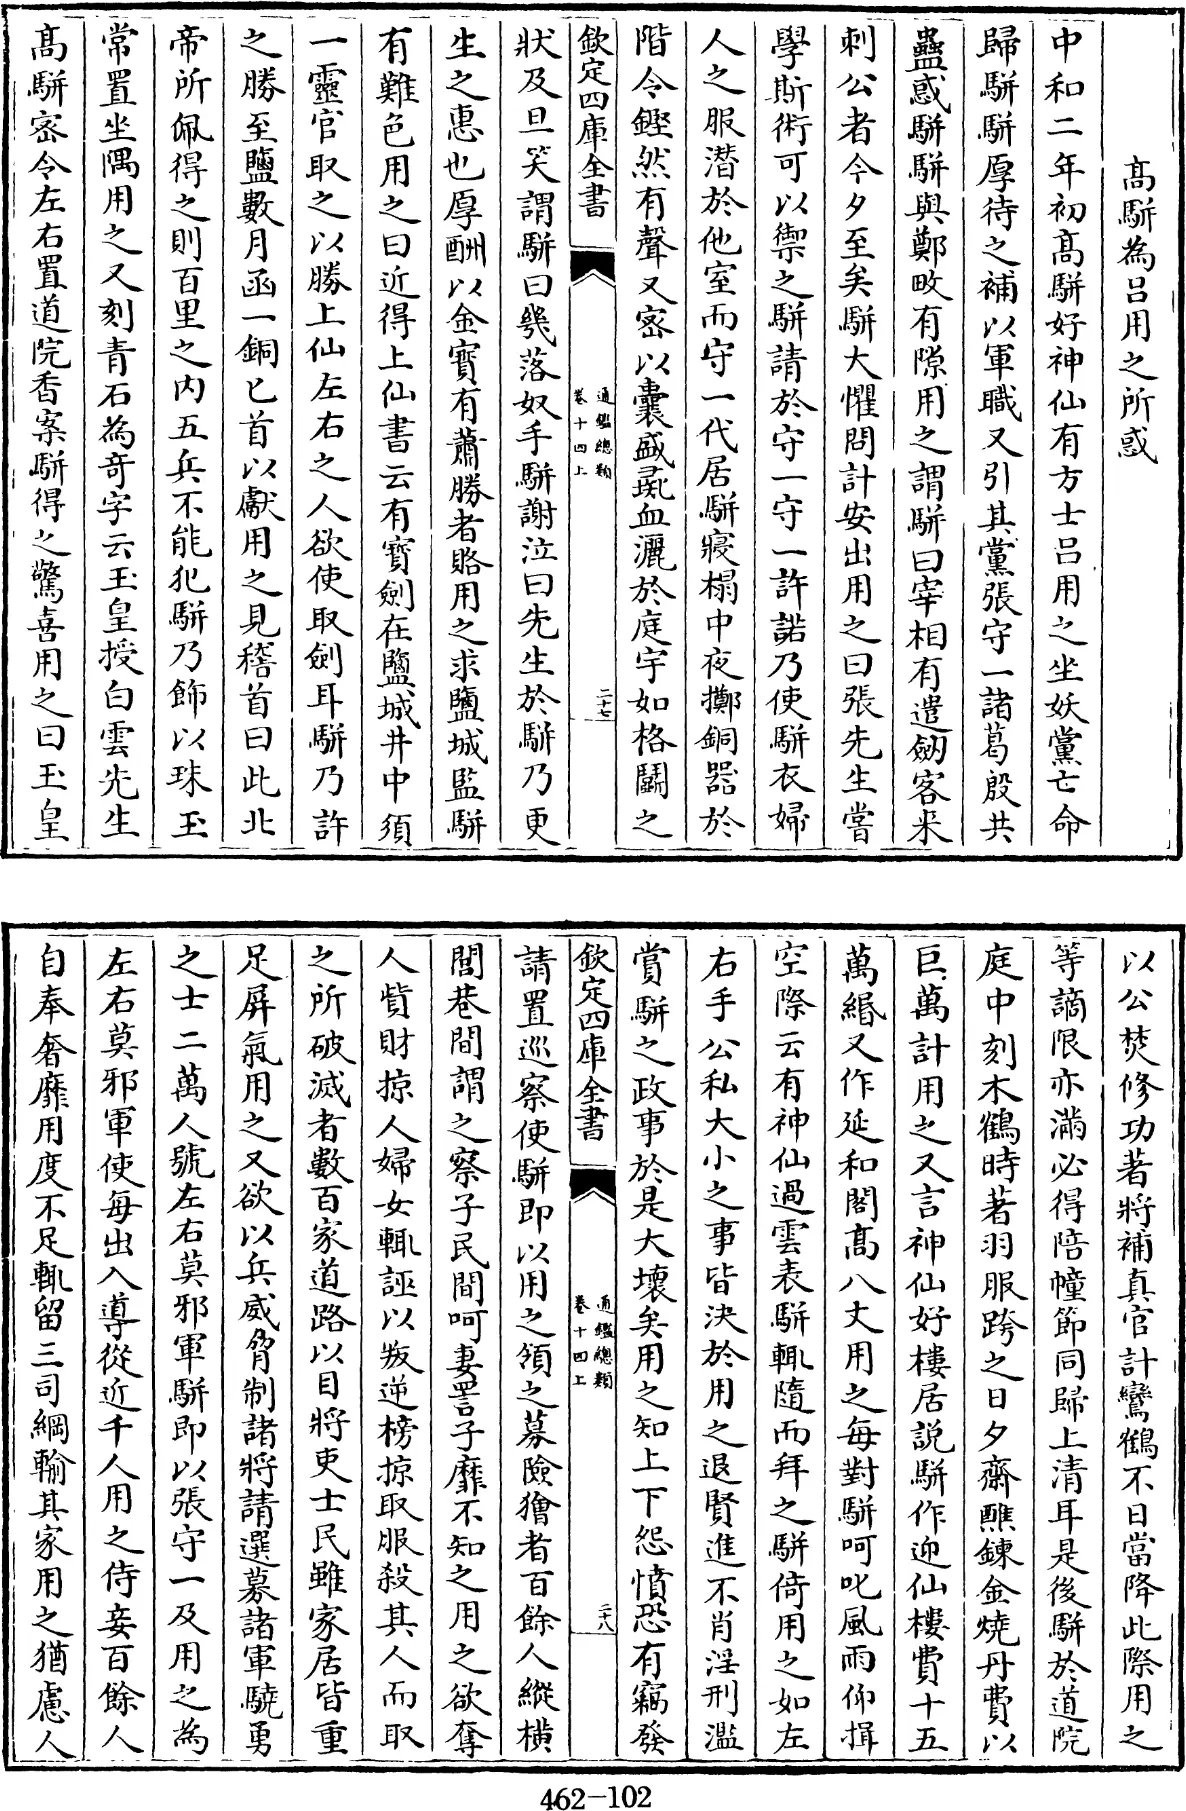 髙駢為呂用之所惑
中和二年初髙駢好神仙有方士呂用之坐妖黨亡命
歸駢駢厚待之補以軍職又引其黨張守一諸葛殷共
蠱惑駢駢與鄭畋有隙用之謂駢曰宰相有遣劒客来
刺公者今夕至矣駢大懼問計安出用之曰張先生嘗
學斯術可以禦之駢請於守一守一許諾乃使駢衣婦
人之服潛於他室而守一代居駢寢榻中夜擲銅器於
階令鏗然有聲又宻以囊盛彘血灑於庭宇如格鬬之
欽定四庫全書
通鑑總類
卷十四上
二十七
狀及旦笑謂駢曰幾落奴手駢謝泣曰先生於駢乃更
生之惠也厚酬以金寳有蕭勝者賂用之求鹽城監駢
有難色用之曰近得上仙書云有寳劍在鹽城井中須
一靈官取之以勝上仙左右之人欲使取劍耳駢乃許
之勝至鹽數月函一銅匕首以獻用之見稽首曰此北
帝所佩得之則百里之内五兵不能犯駢乃飾以珠玉
常置坐隅用之又刻青石為竒字云玉皇授白雲先生
髙駢宻令左右置道院香案駢得之驚喜用之曰玉皇
以公焚修功著將補真官計鸞鶴不日當降此際用之
等謫限亦滿必得陪幢節同歸上清耳是後駢於道院
庭中刻木鶴時著羽服跨之日夕齋醮鍊金燒丹費以
巨萬計用之又言神仙好樓居説駢作迎仙樓費十五
萬緡又作延和閣髙八丈用之每對駢呵叱風雨仰揖
空際云有神仙過雲表駢輒隨而拜之駢倚用之如左
右手公私大小之事皆決於用之退賢進不肖淫刑濫
賞駢之政事於是大壞矣用之知上下怨憤恐有竊發
欽定四庫全書
通鑑總類
卷十四上
二十八
請置巡察使駢即以用之領之募險獪者百餘人縱横
閭巷間謂之察子民間呵妻詈子靡不知之用之欲奪
人貲財掠人婦女輒誣以叛逆榜掠取服殺其人而取
之所破滅者數百家道路以目將吏士民雖家居皆重
足屏氣用之又欲以兵威脅制諸將請選募諸軍驍勇
之士二萬人號左右莫邪軍駢即以張守一及用之為
左右莫邪軍使每出入導從近千人用之侍妾百餘人
自奉奢靡用度不足輒留三司綱輸其家用之猶慮人
462-102